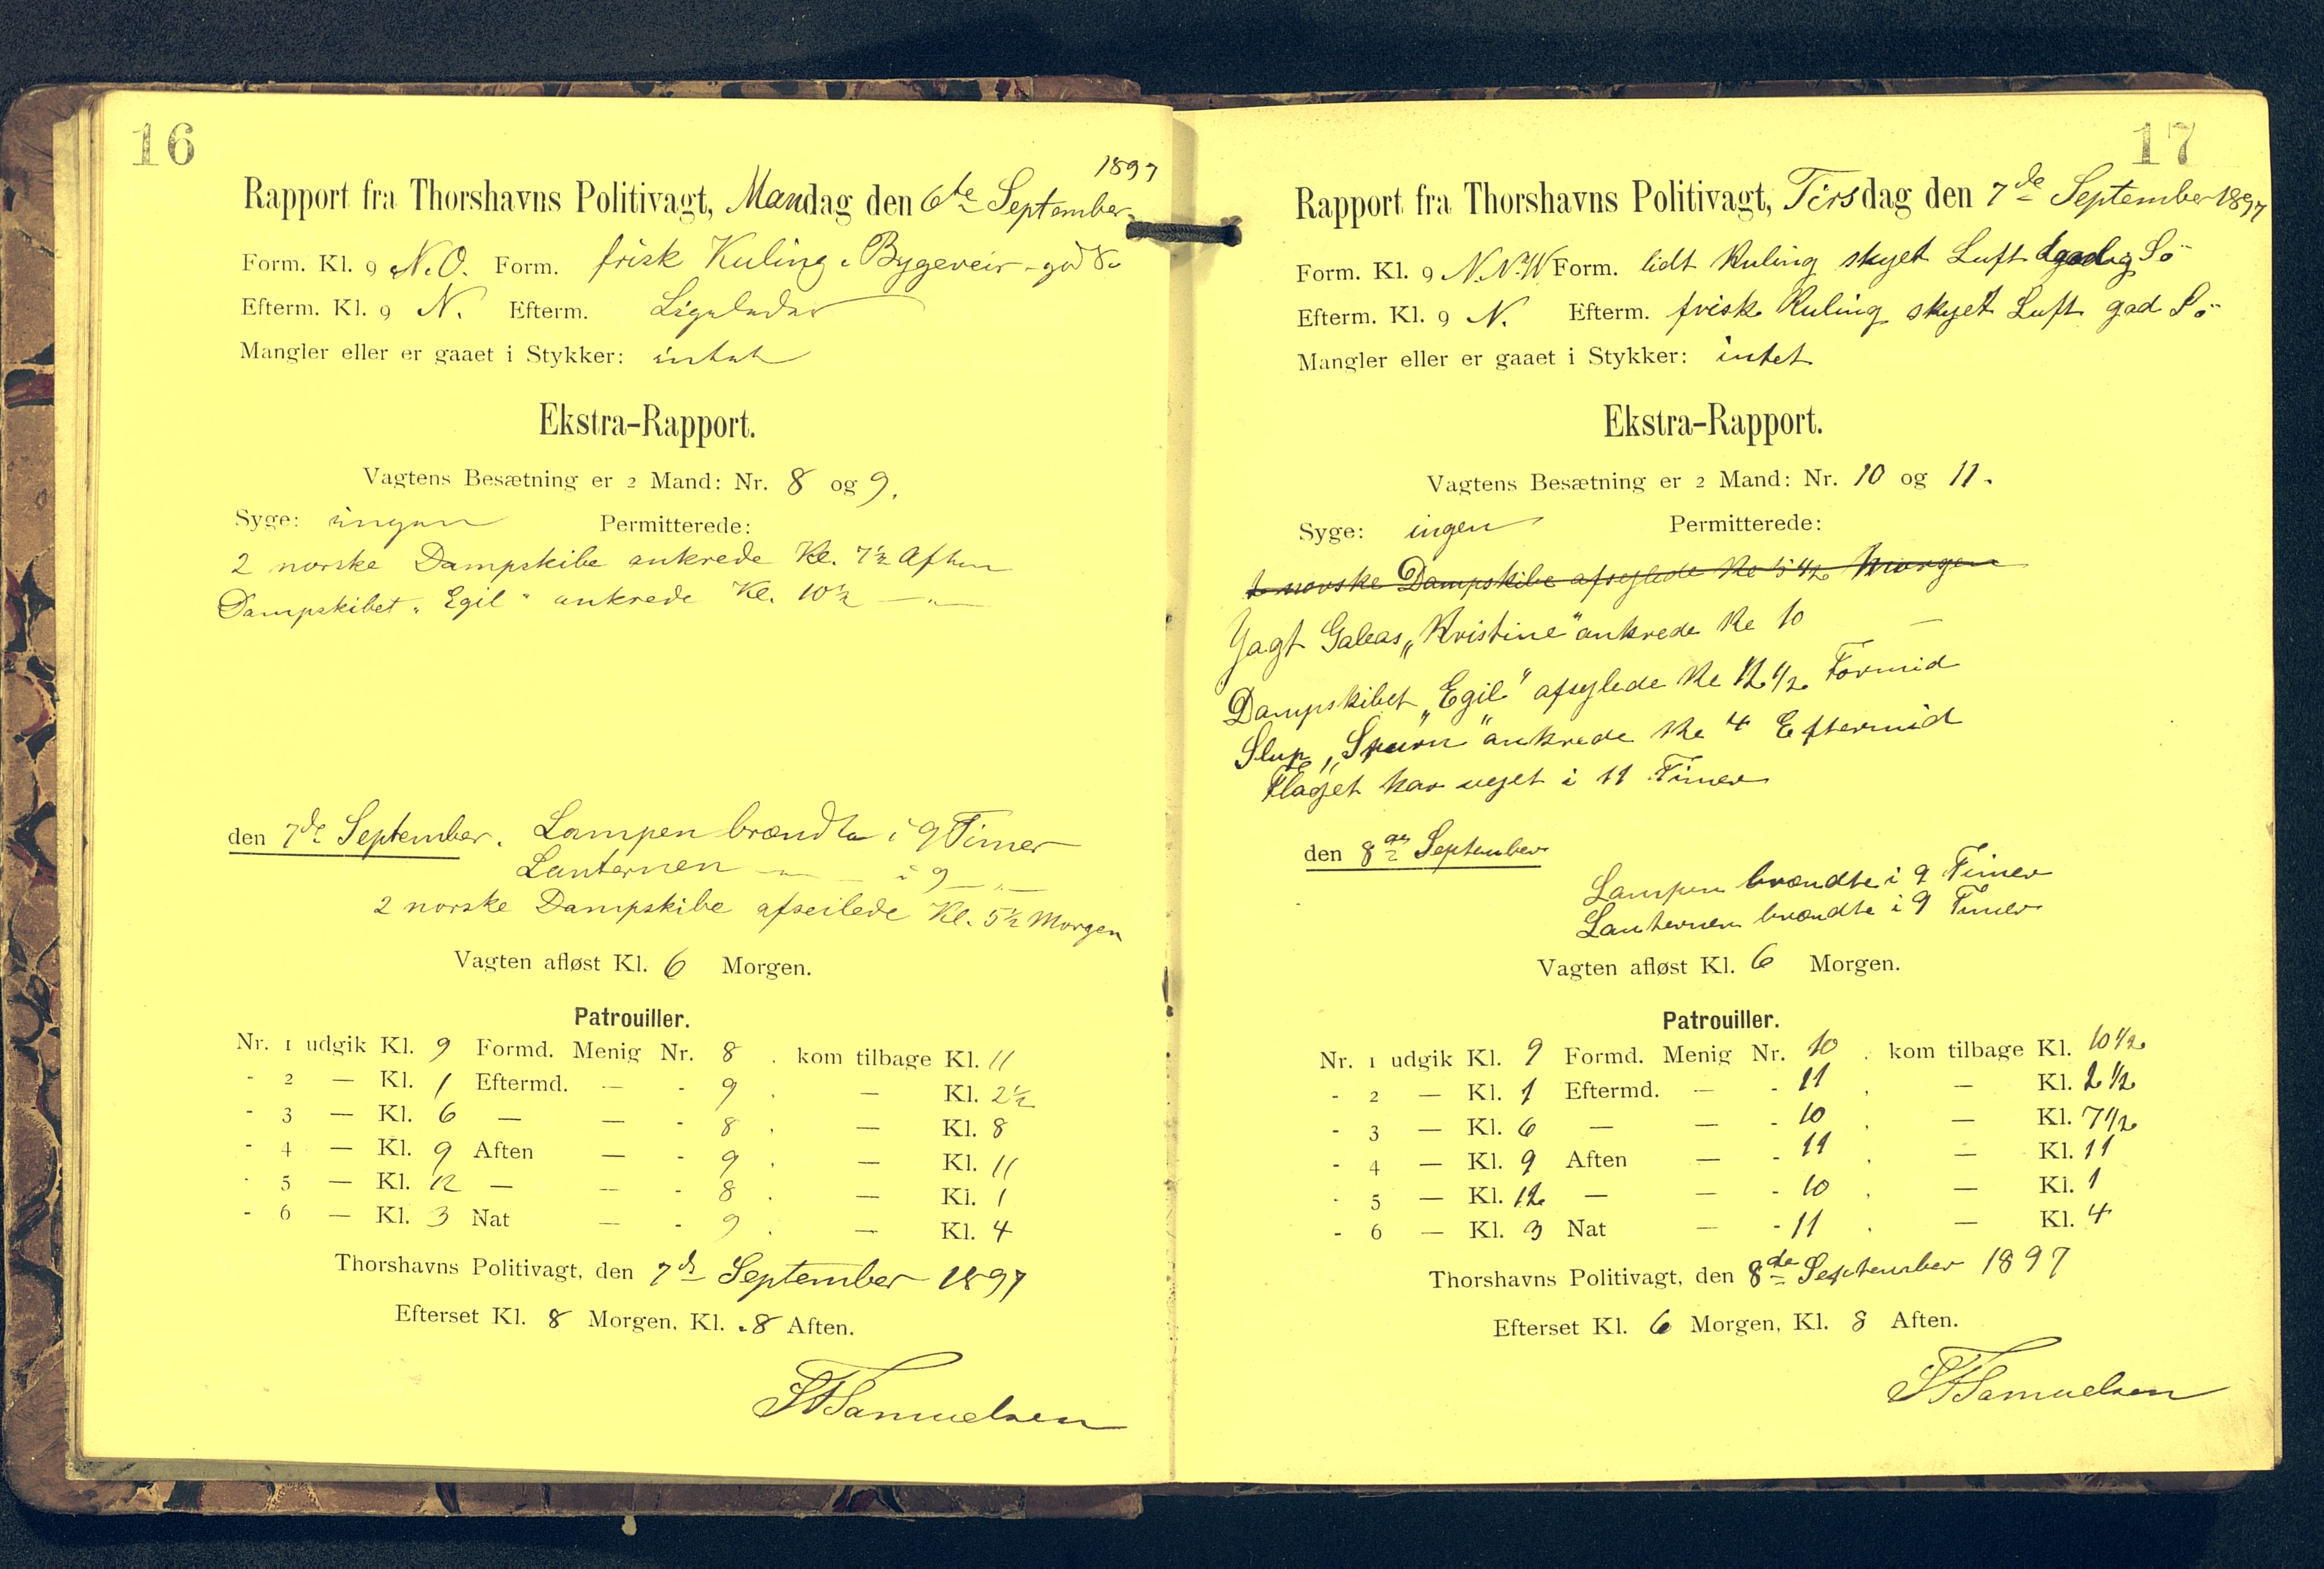 16
1897
Rapport fra Thorshavns Politivagt, Mandag den 6te September
Form. Kl. 9 N.O. Form. frisk Kuling. Bygeveir - god Sö
Efterm. Kl. 9 N. Efterm. Ligeledes
Mangler eller er gaaet i Stykker: intet
Ekstra-Rapport.
Vagtens Besætning er 2 Mand: Nr. 8 og 9.
Syge: ingen Permitterede:
2 norske Dampskibe ankrede Kl. 7½ Aften
Dampskibet „Egil" ankrede Kl. 10½ — „ —
den 7de September. Lampen brændte i 9 Timer
Lanternen — „ — i 9 — „ —
2 norske Dampskibe afseilede Kl. 5½ Morgen
Vagten afløst Kl. 6 Morgen.
Patrouiller.
Nr. 1 udgik Kl. 9 Formd. Menig Nr. 8 . kom tilbage Kl. 11
- 2 — Kl. 1 Eftermd. — - 9 . — Kl. 2½
- 3 — Kl. 6 — — - 8 . — Kl. 8
- 4 — Kl. 9 Aften — - 9 . — Kl. 11
- 5 — Kl. 12 — — - 8 . — Kl. 1
- 6 — Kl. 3 Nat — - 9 . — Kl. 4
Thorshavns Politivagt, den 7de September 1897
Efterset Kl. 8 Morgen, Kl. 8 Aften.
Samuelsen
17
Rapport fra Thorshavns Politivagt, Tirsdag den 7de September 1897
Form. Kl. 9 N.N.W Form. lidt Kuling skyet Luft Sö
Efterm. Kl. 9 N. Efterm. frisk Kuling skyet Luft god Sö
Mangler eller er gaaet i Stykker: intet
Ekstra-Rapport.
Vagtens Besætning er 2 Mand: Nr. 10 og 11.
Syge: ingen Permitterede:
2 norske Dampskibe afseglede Kl 5 1/2 Morgen
Jagt Galeas „Kristine" ankrede Kl 10 —
Dampskibet „Egil" afseglede Kl 12 1/2 Formid
Slup „Spurn" ankrede Kl 4 Eftermid
Flaget har vejet i 11 Timer
den 8de September
Lampen brændte i 9 Timer
Lanternen brændte i 9 Timer
Vagten afløst Kl. 6 Morgen.
Patrouiller.
Nr. 1 udgik Kl. 9 Formd. Menig Nr. 10 . kom tilbage Kl. 10 1/2
- 2 — Kl. 1 Eftermd. — - 11 . — Kl. 2 1/2
- 3 — Kl. 6 — — - 10 . — Kl. 7 1/2
- 4 — Kl. 9 Aften — - 11 . — Kl. 11
- 5 — Kl. 12 — — - 10 . — Kl. 1
- 6 — Kl. 3 Nat — - 11 . — Kl. 4
Thorshavns Politivagt, den 8de September 1897
Efterset Kl. 6 Morgen, Kl. 8 Aften.
Samuelsen